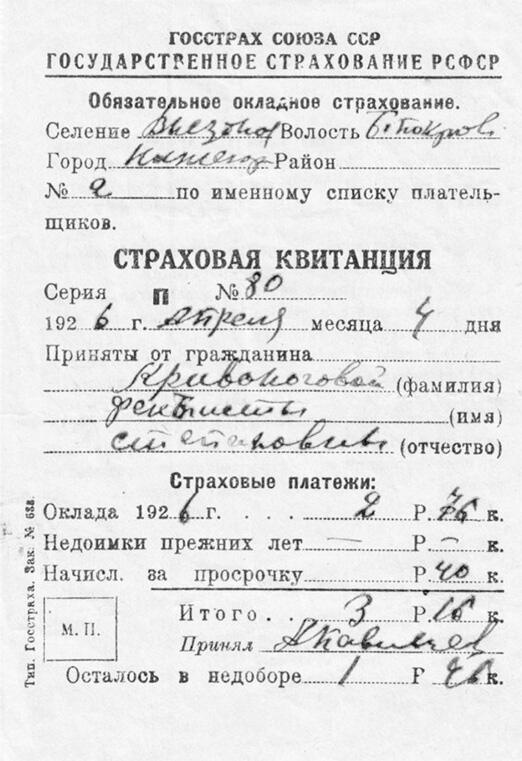 ГОССТРАХ СОЮЗА ССР
ГОСУДАРСТВЕННОЕ СТРАХОВАНИЕ РСФСР
Обязательное окладное страхование.
Селение Волость
Город Район
№ 2 по именному списку платель-
щиков.
СТРАХОВАЯ КВИТАНЦИЯ
Серия П №80
1926 г. Апреля месяца 4 дня
Приняты от гражданина
Кривоноговой (фамилия)
(имя)
Степановны (отчество)
Страховые платежи:
Оклада 1926 г. . . . 2 Р. 76 к.
Недоимки прежних лет — Р. – к.
Начисл. за просрочку Р. 40 к.
Итого . . 3 Р. 16 к.
М. П.
Принял
Осталось в недоборе 1 Р к.
Тип. Госстраха. Зак. №